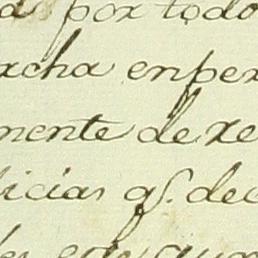 por todo
rcha enper
mente de re
icias qs. dec